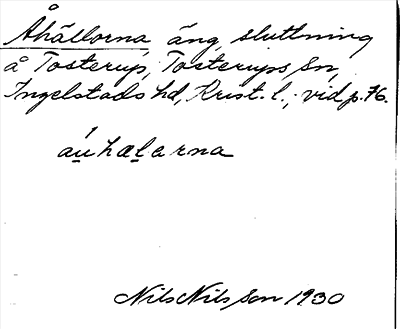 Åhällorna äng, sluttning
å Tosterup, Tosterups sn,
Ingelstads hd, Krist. l., vid p. 76.
áu̱hæḻarna
Nils Nilsson 1930